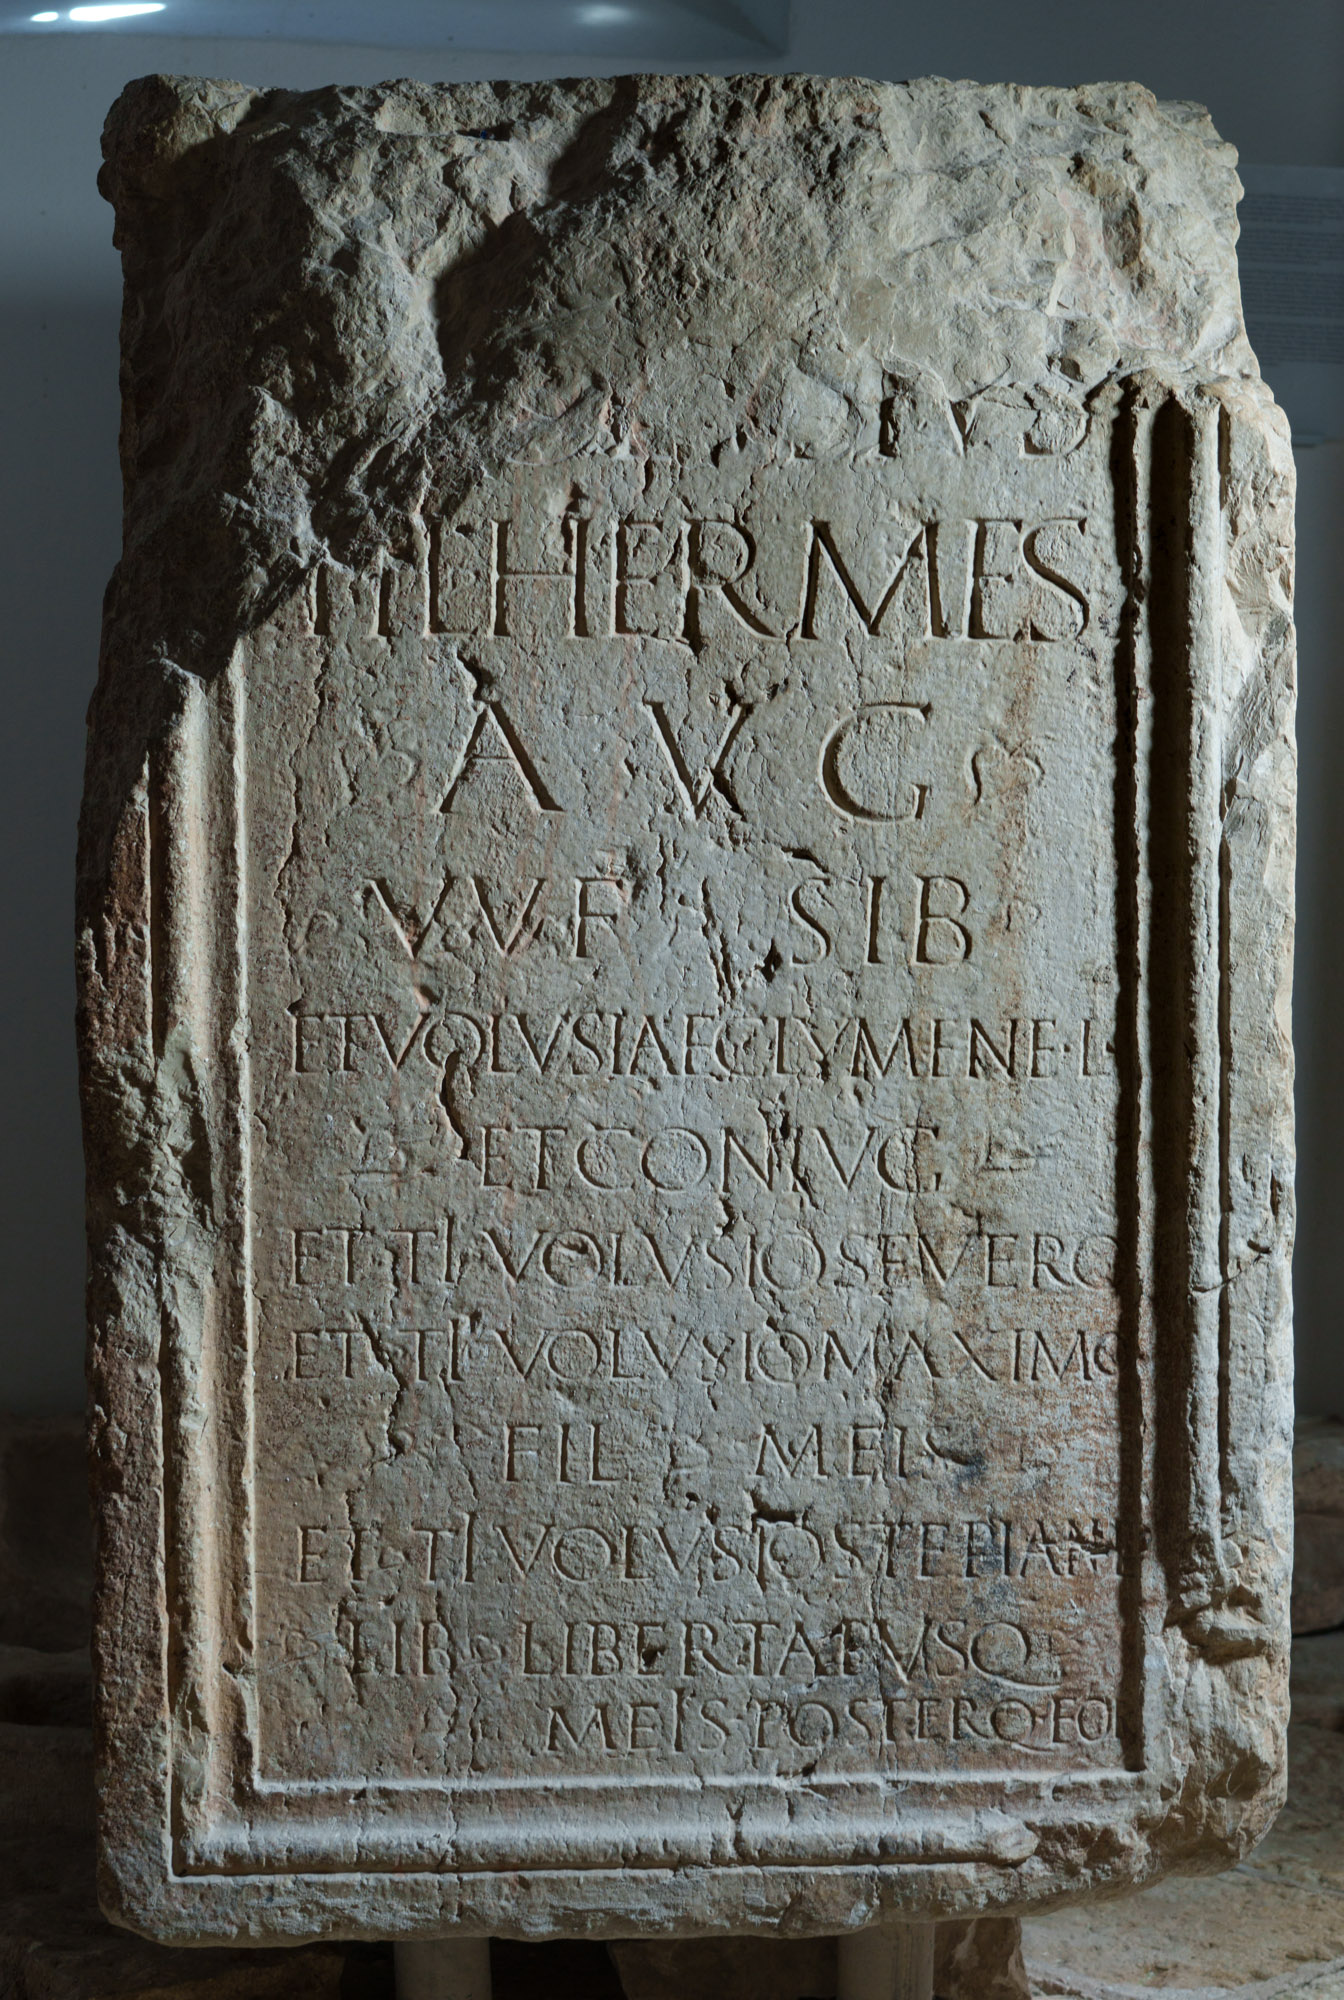 HERMES
AVG
V V F SIB
ET VOLVSIAE CLYMENE L
ET CONIVG
ET TI VOLVSIO SEVERO
ET TI VOLVSIO MAXIMO
FIL MEIS
ET TI VOLVSIO
LIB LIBERTABVSQ
MEIS POSTERQ EOR